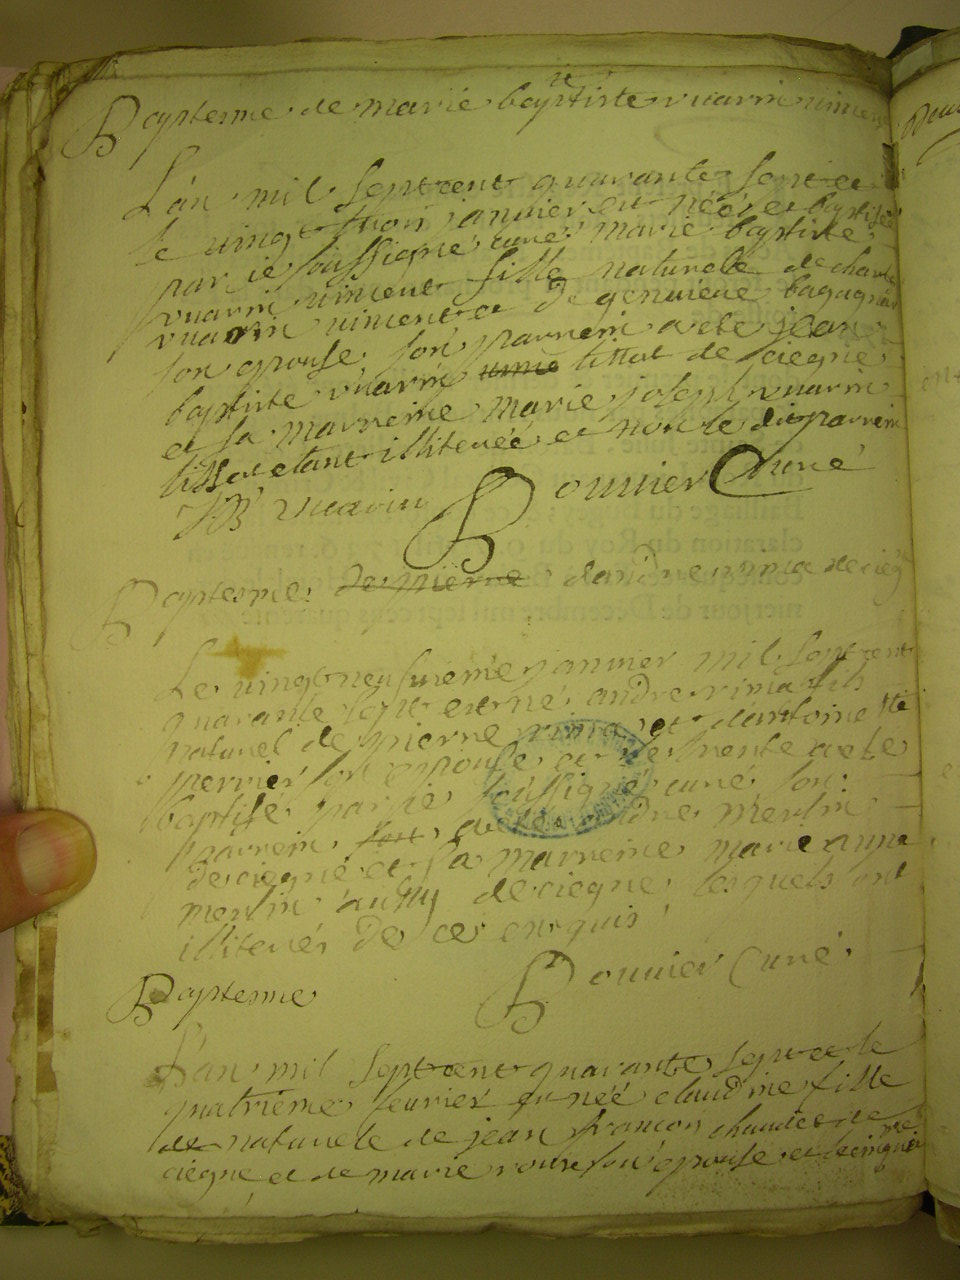 Baptesme de marie baptiste vuarin viment
L'an mil sept cent quarante sept et
le vingt trois janvier est néé et baptiséé
par je soussigne curé marie baptiste
vuarin viment fille naturele de charle
vuarin viment et de genvieve
son epouse son parrein a ete jean
baptiste vuarin tissot de ciegne
et sa marreine marie joseph vuarin
tissot etant illiteréé et non le dit parrein
JB vuarin Bouuier Curé
Baptesme de pierre d'andre rima de cieg
Le vingt neufvieme janvier mil sept cent
quarante sept est né andre rima fils
naturel de pierre rima et d'antoinette
perrier son epouse et a ete
baptise par je soussigné curé son
parrein a ete andre merlin
de ciegne et sa marreine marie anne
merlin aussy de ciegne lesquels ont
illiterés de ce enquis
Bouuier Curé
Baptesme
L'an mil sept cent quarante sept et le
quatrieme fevrier est néé claudine fille
naturele de jean françois chaudet de
ciegne et de marie roux son epouse et